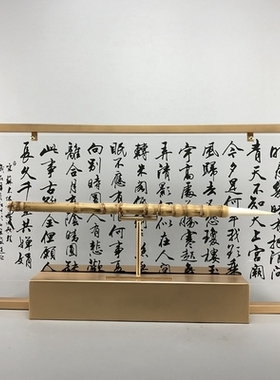 青天不知天上宮闕
今夕是何年我欲乘
風歸去又恐瓊樓玉
宇高處不勝寒起舞
弄清影何似在人間
轉朱閣低
眠不應有恨何事長
向別時圓人有悲歡
離合月有陰晴圓缺
此事古難全但願人
長久千里共嬋娟